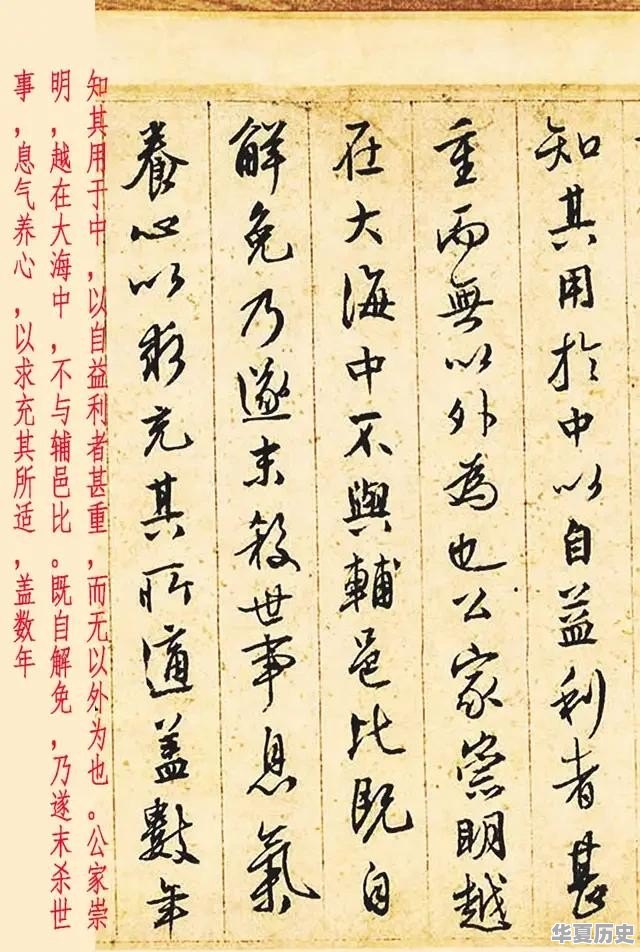 知其用於中以自益利者甚
重而無以外為也公家崇明越
在大海中不與輔邑比既自
解免乃遂末殺世事息氣
養心以求充其所適蓋數年
知其用于中，以自益利者甚重，而无以外为也。公家崇
明，越在大海中，不与辅邑比。既自解免，乃遂末杀世
事，息气养心，以求充其所适，盖数年
华夏历史